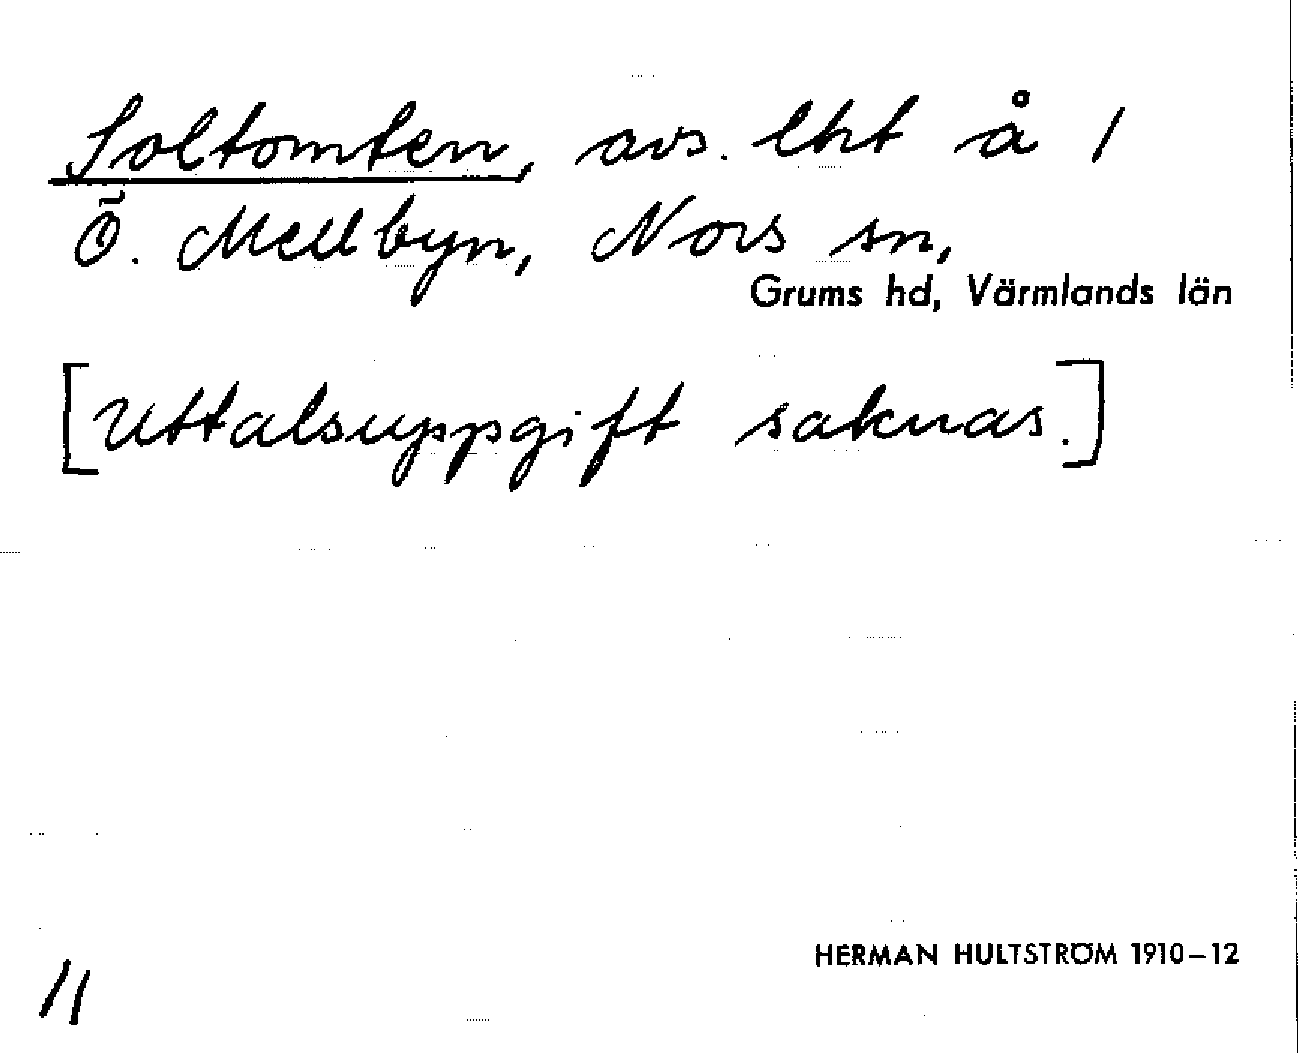 Soltomten, avs. lht å 1
Ö. Mellbyn, Nors sn,
Grums hd, Värmlands län
[Uttalsuppgift saknas.]
HERMAN HULTSTRÖM 1910–12
11